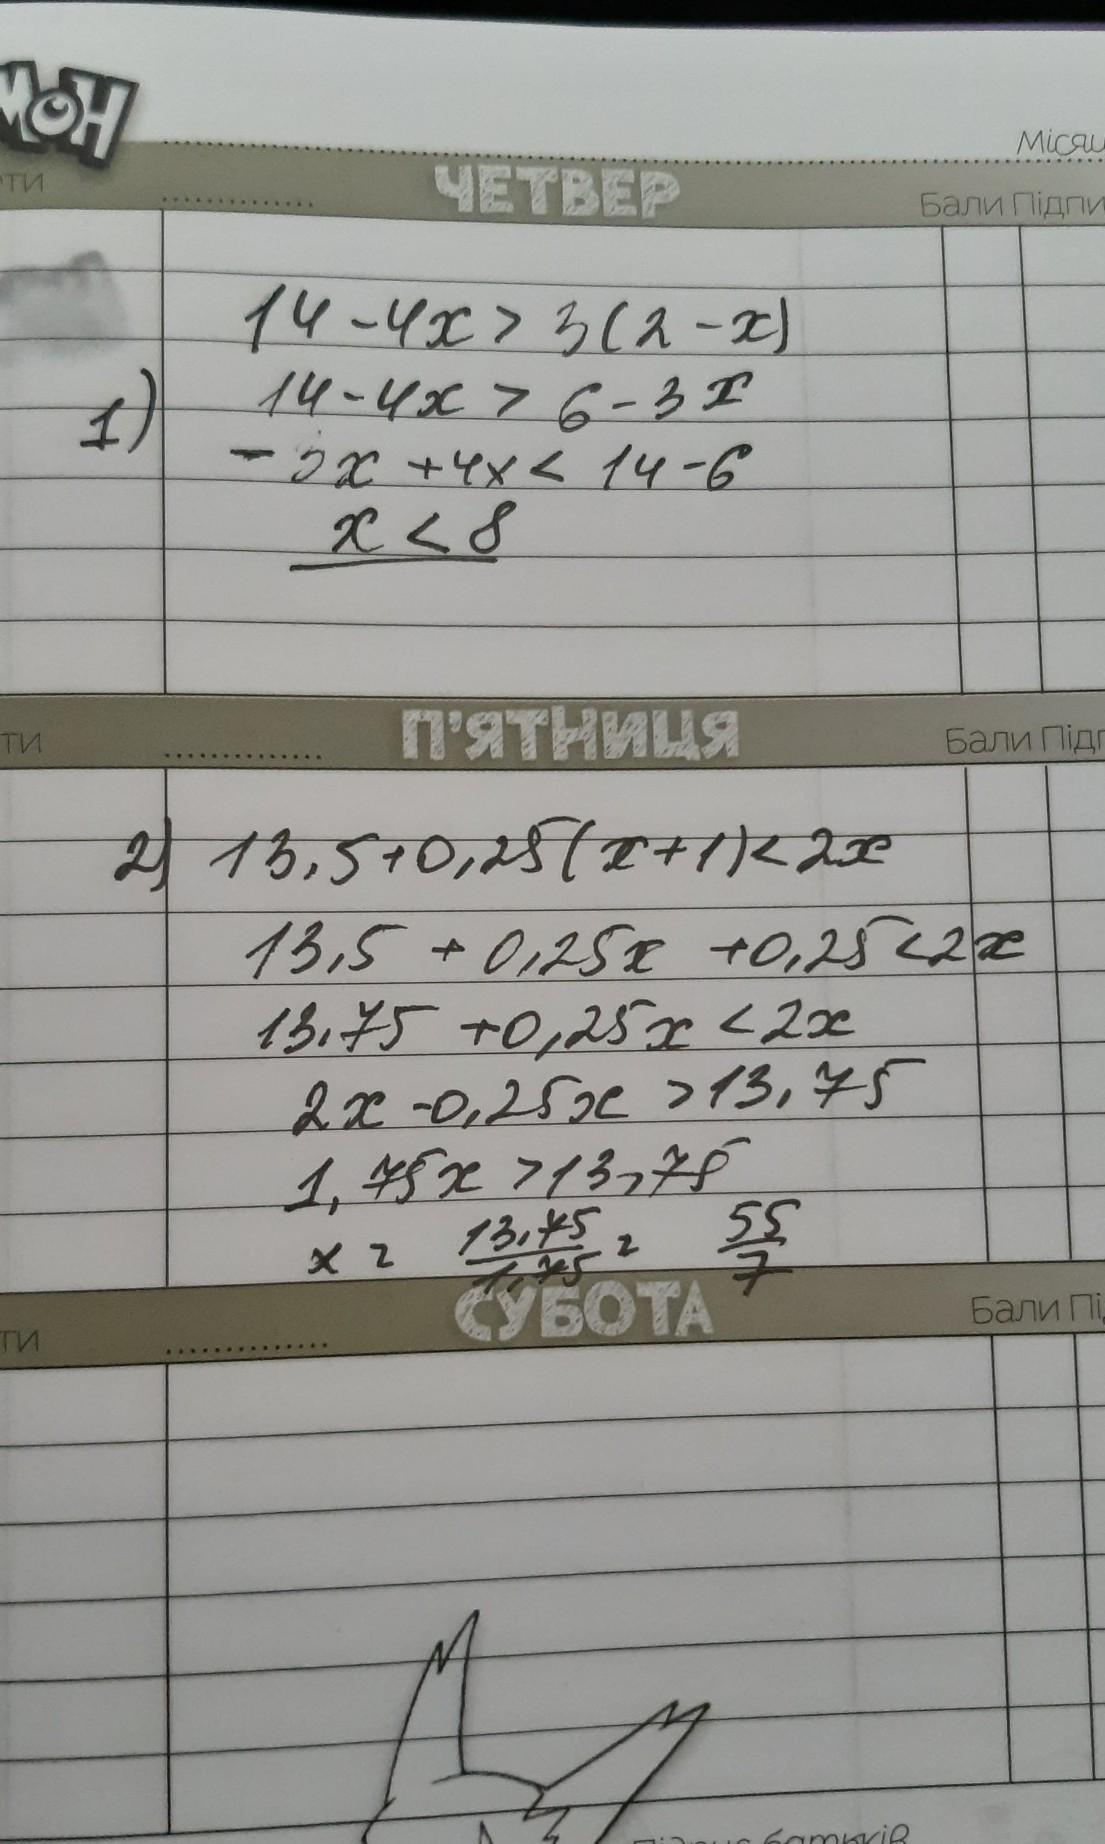 МОН
Місяц
ЧЕТВЕР
Бали Підпи
14 - 4x > 3(2 - x)
1) 14 - 4x > 6 - 3x
- 3x + 4x < 14 - 6
x < 8
П'ЯТНИЦЯ
Бали Підп
2) 13,5 + 0,25(x + 1) < 2x
13,5 + 0,25x + 0,25 < 2x
13,75 + 0,25x < 2x
2x - 0,25x > 13,75
1,75x > 13,75
x > 13,75/1,75 = 55/7
СУБОТА
Бали Пі